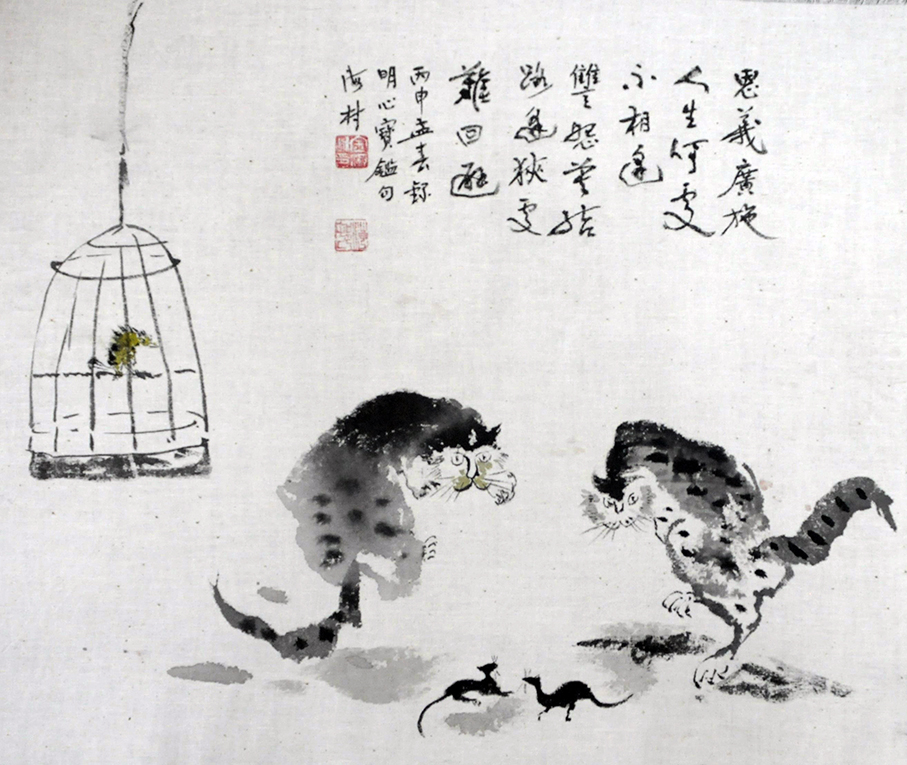 恩義廣施
人生何處
不相逢
讐怨莫結
路逢狹處
難回避
丙申孟春錄
明心寶鑑句
海村